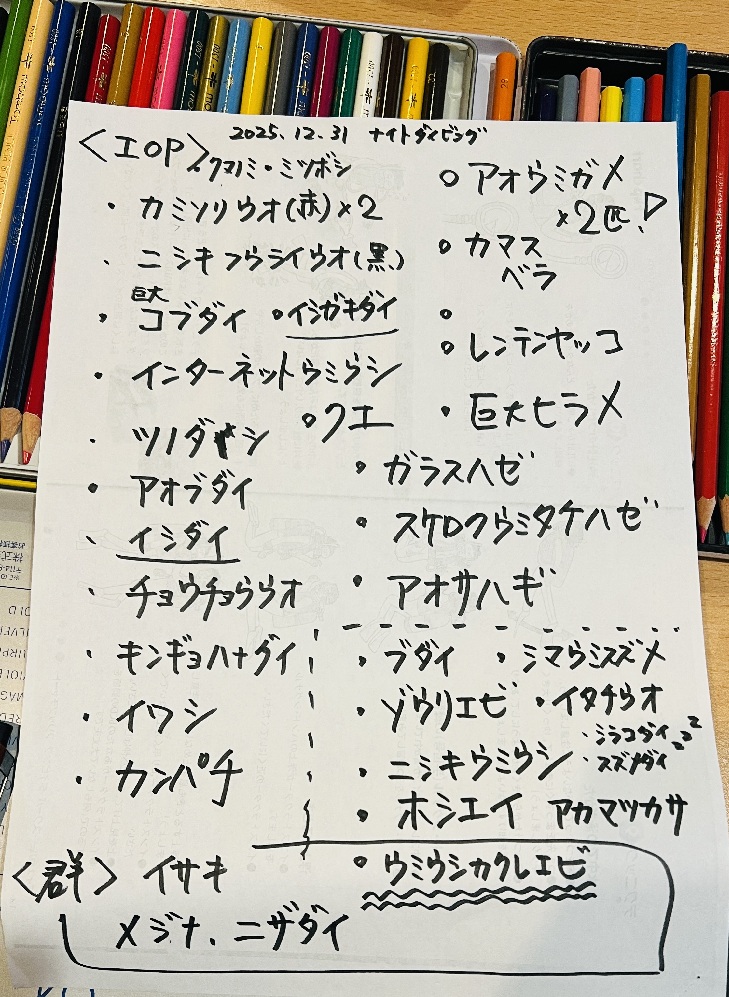 2025.12.31 ナイトダイビング
〈IOP〉
・クマノミ・ミツボシ
・カミソリウオ(赤)×2
・ニシキフウライウオ(黒)
巨大
・コブダイ ・イシガキダイ
・インターネットウミウシ
・クエ
・ツノダシ
・アオブダイ
・イシダイ
・チョウチョウウオ
・キンギョハナダイ
・イワシ
・カンパチ
○アオウミガメ
×2匹!
○カマス
ベラ
○
○レンテンヤッコ
・巨大ヒラメ
・ガラスハゼ
・スケロクウミタケハゼ
・アオサハギ
・ブダイ ・シマウミスズメ
・ゾウリエビ ・イタチウオ
・ニシキウミウシ
スズメダイ
・ホシエイ アカマツカサ
・ウミウシカクレエビ
〈群〉 イサキ
メジナ、ニザダイ